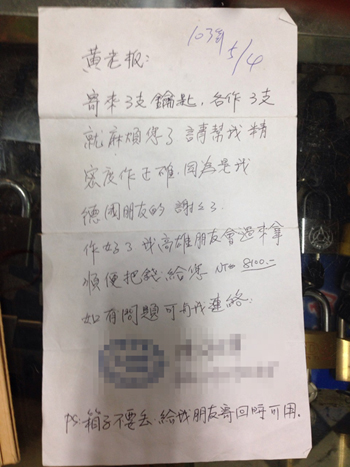 103年 5/4
黃老板:
寄來3支鑰匙, 各作3支
就麻煩您了 請幫我精
密度作正確.因為是我
德國朋友的 謝々了.
作好了 我高雄朋友會過來拿
順便把錢給您 NT= 8100.-
如有問題可與我連絡.
PS:箱子不要丟.給我朋友寄回時可用.